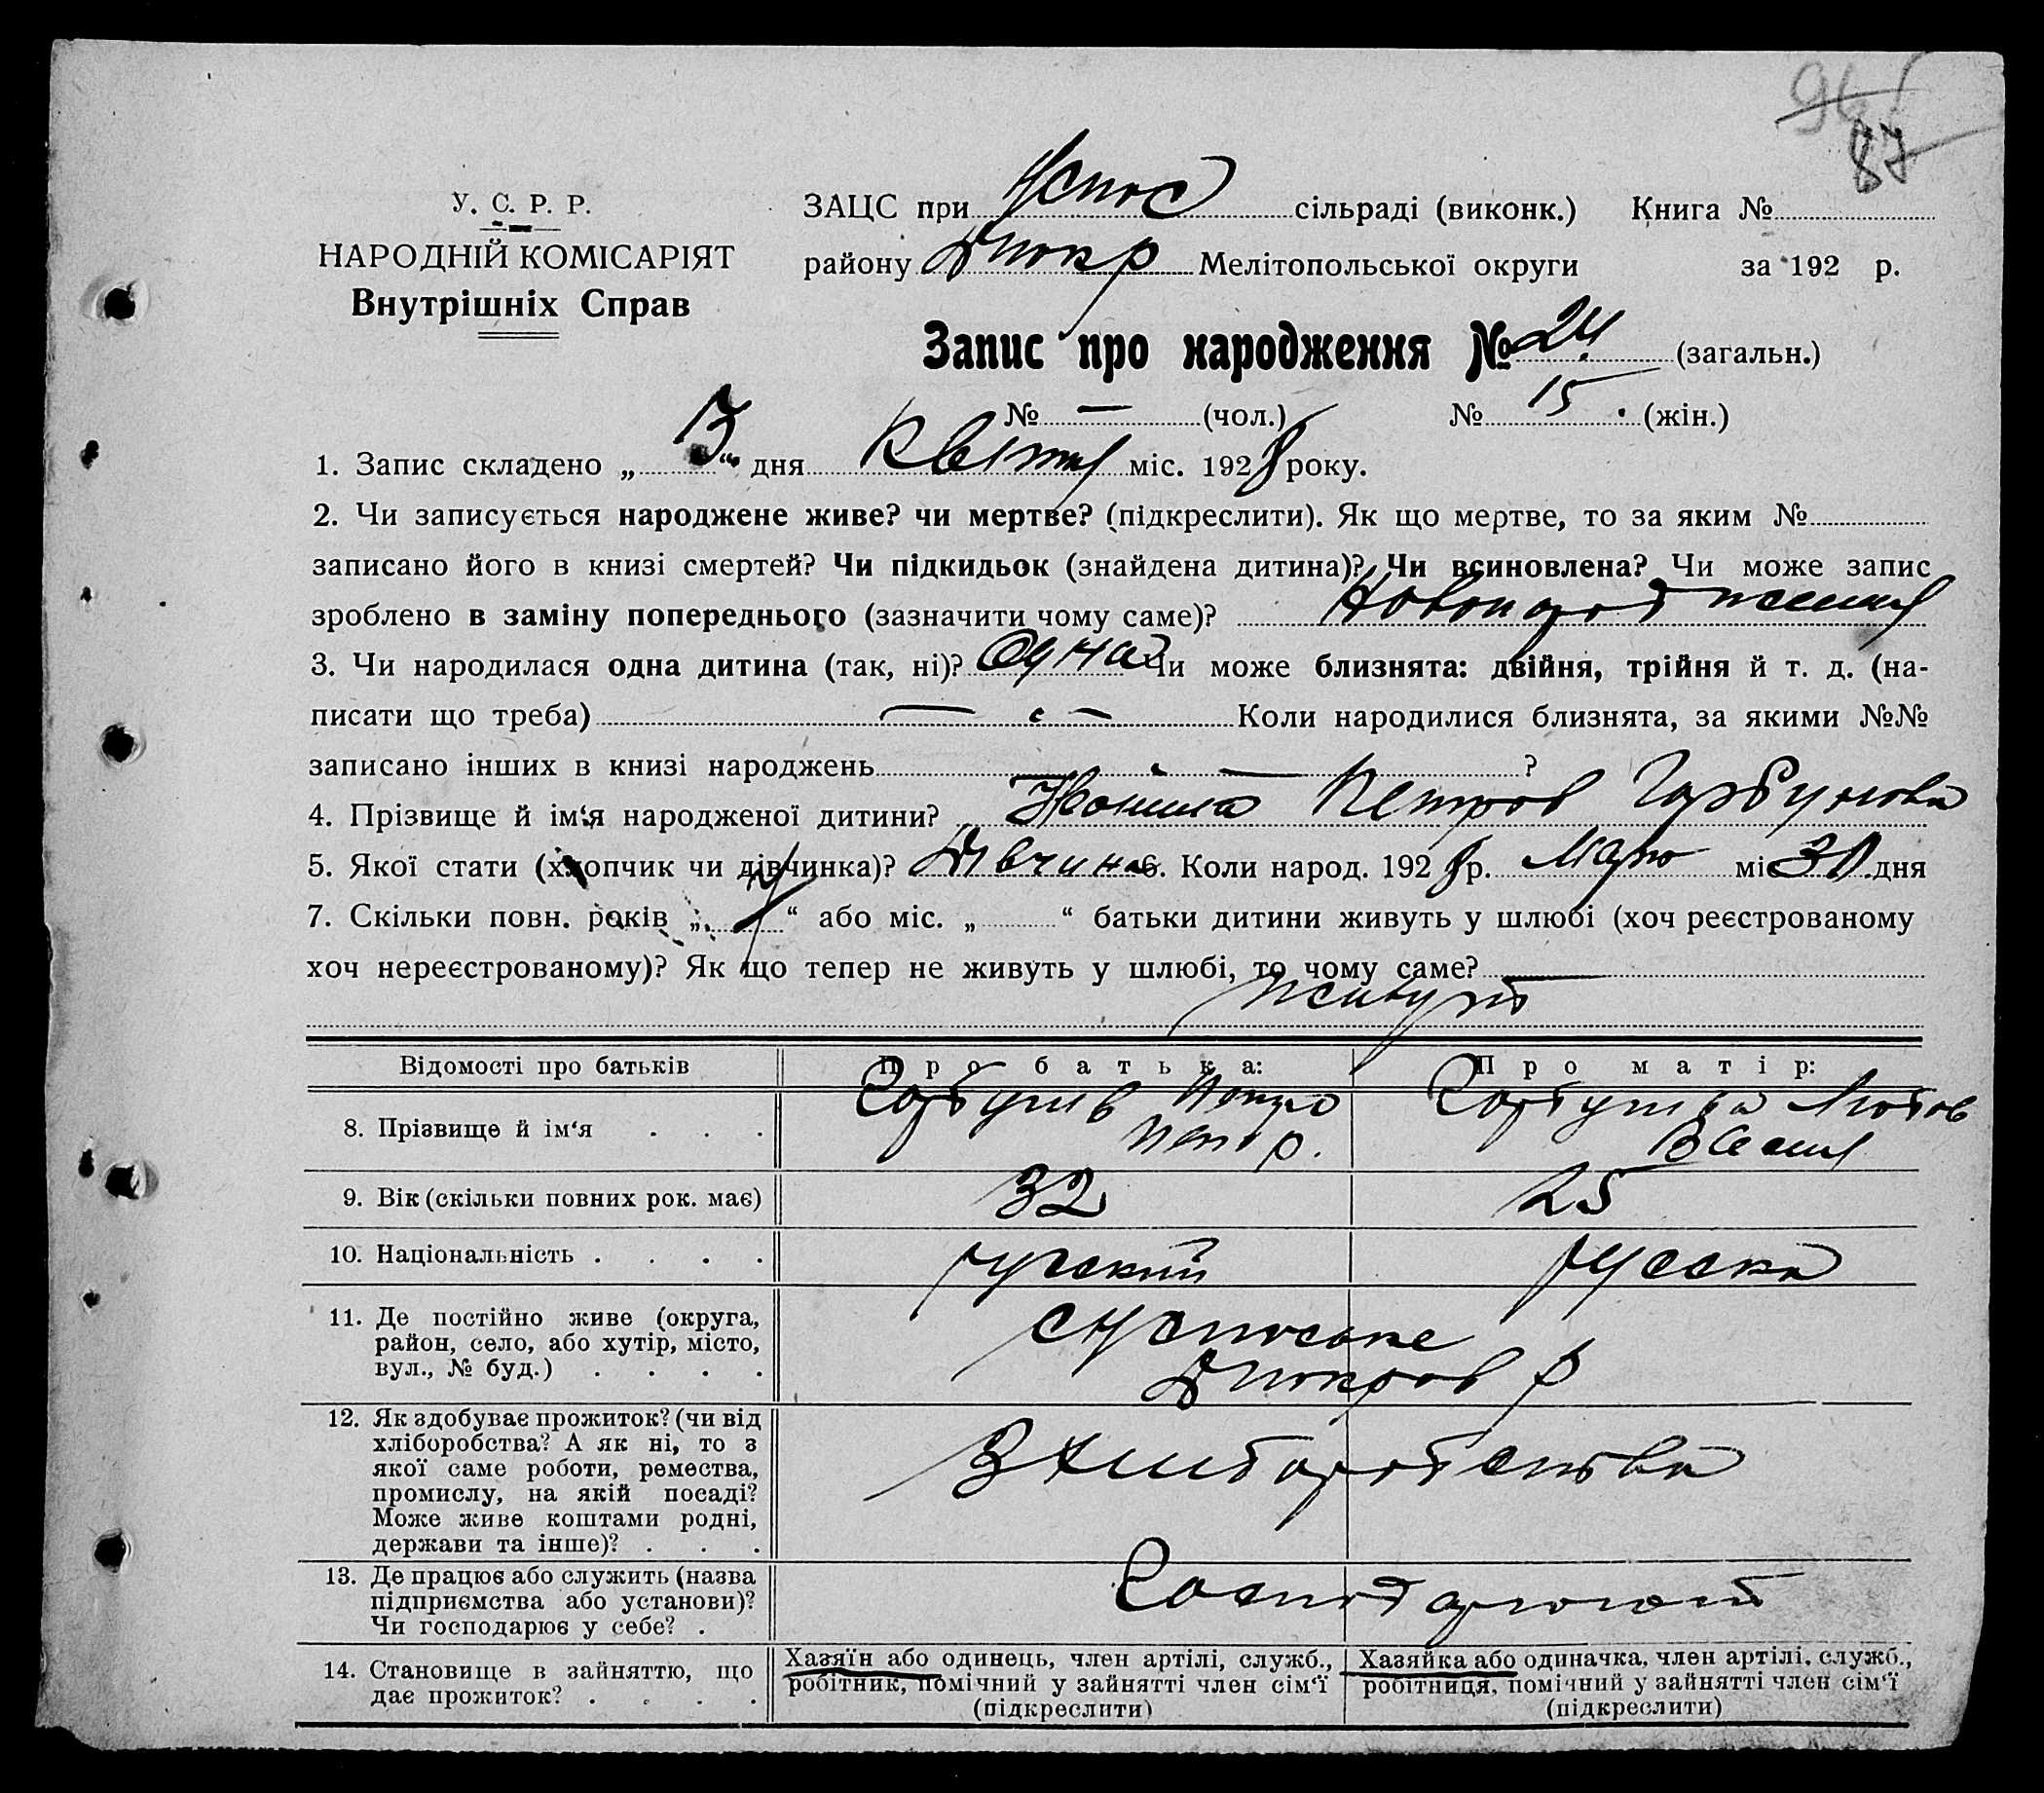 87
У. С. Р. Р.
НАРОДНІЙ КОМІСАРІЯТ
Внутрішніх Справ
ЗАЦС при Успос сільраді (виконк.) Книга №
району Якокр Мелітопольської округи за 192 р.
Запис про народження № 24 (загальн.)
№ — (чол.) № 15. (жін.)
1. Запис складено „ 3 “ дня Квітня міс. 1928 року.
2. Чи записується народжене живе? чи мертве? (підкреслити). Як що мертве, то за яким №
записано його в книзі смертей? Чи підкидьок (знайдена дитина)? Чи всиновлена? Чи може запис
зроблено в заміну попереднього (зазначити чому саме)? Новонародження
3. Чи народилася одна дитина (так, ні)? Одна Чи може близнята: двійня, трійня й т. д. (на-
писати що треба) — Коли народилися близнята, за якими №№
записано інших в книзі народжень — ?
4. Прізвище й ім‘я народженої дитини? Петров Горбунова
5. Якої стати (хлопчик чи дівчинка)? Дівчина 6. Коли народ. 1928 р. Марта міс 30. дня
7. Скільки повн. років „ “ або міс. „ “ батьки дитини живуть у шлюбі (хоч реєстрованому
хоч нереєстрованому)? Як що тепер не живуть у шлюбі, то чому саме?
живуть
Відомості про батьків Про батька: Про матір:
8. Прізвище й ім‘я . . . Горбунів Петро Петр. Горбунова Любов Васил
9. Вік (скільки повних рок. має) 32 25
10. Національність . . . . русский русска
11. Де постійно живе (округа,
район, село, або хутір, місто,
вул., № буд.) . . . .
12. Як здобуває прожиток? (чи від
хліборобства? А як ні, то з
якої саме роботи, ремества,
промислу, на якій посаді?
Може живе коштами родні,
держави та інше)? . . .
З хліборобства
13. Де працює або служить (назва
підприємства або установи)?
Чи господарює у себе? .
Господарюють
14. Становище в зайняттю, що
дає прожиток? . . . .
Хазяїн або одинець, член артілі, служб.,
робітник, помічний у зайнятті член сім‘ї
(підкреслити)
Хазяйка або одиначка, член артілі, служб.,
робітниця, помічний у зайнятті член сім‘ї
(підкреслити)